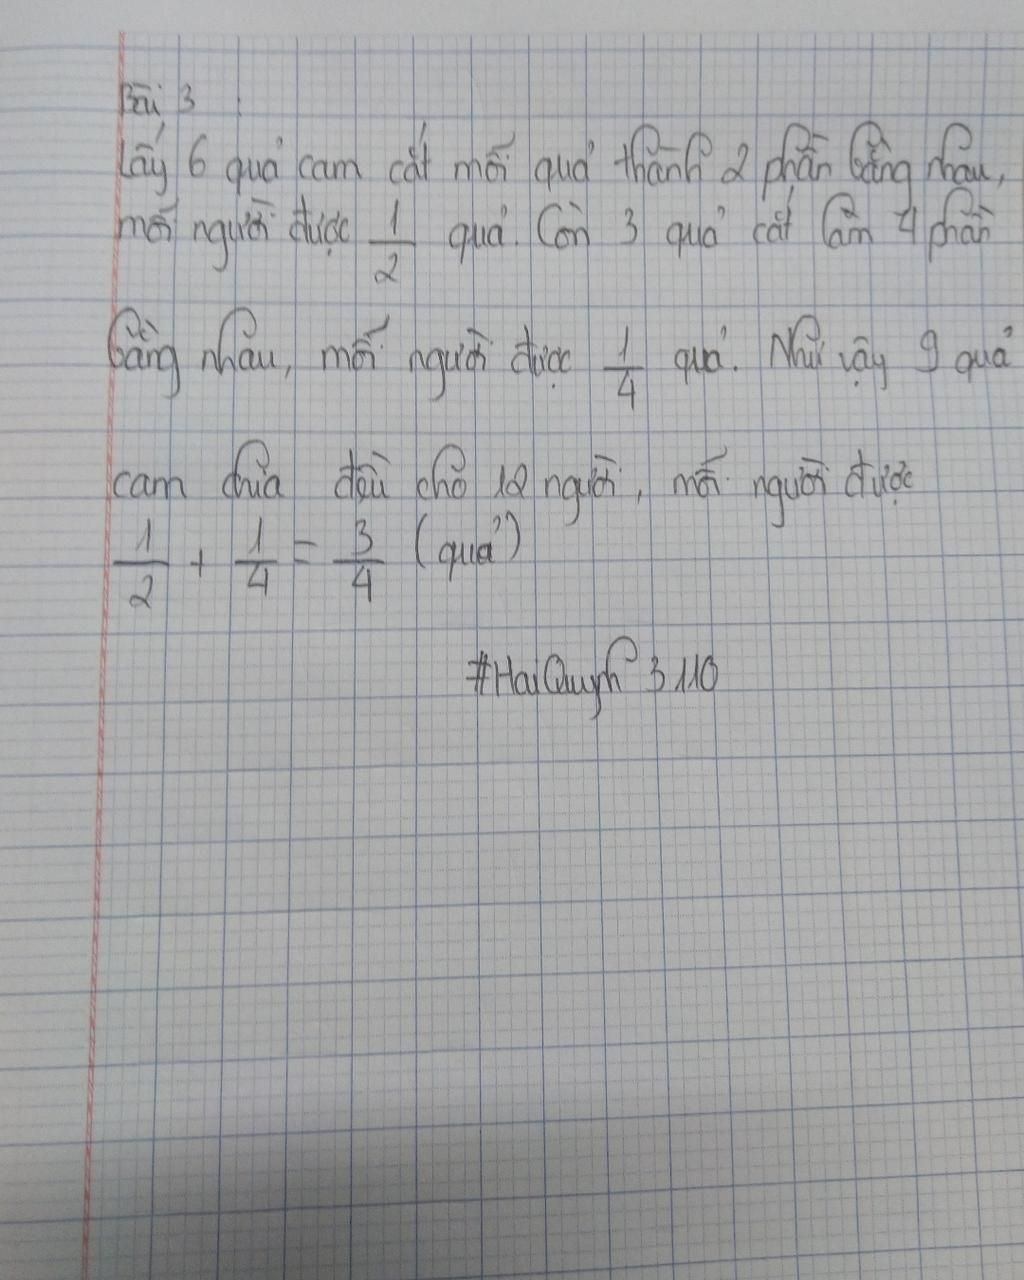 Bài 3
Lấy 6 quả cam cắt mỗi quả thành 2 phần bằng nhau,
mỗi người được 1/2 quả. Còn 3 quả cắt làm 4 phần
bằng nhau, mỗi người được 1/4 quả. Như vậy 9 quả
cam chia đều cho 12 người, mỗi người được
1/2 + 1/4 = 3/4 (quả)
#HaiQuynh 3110